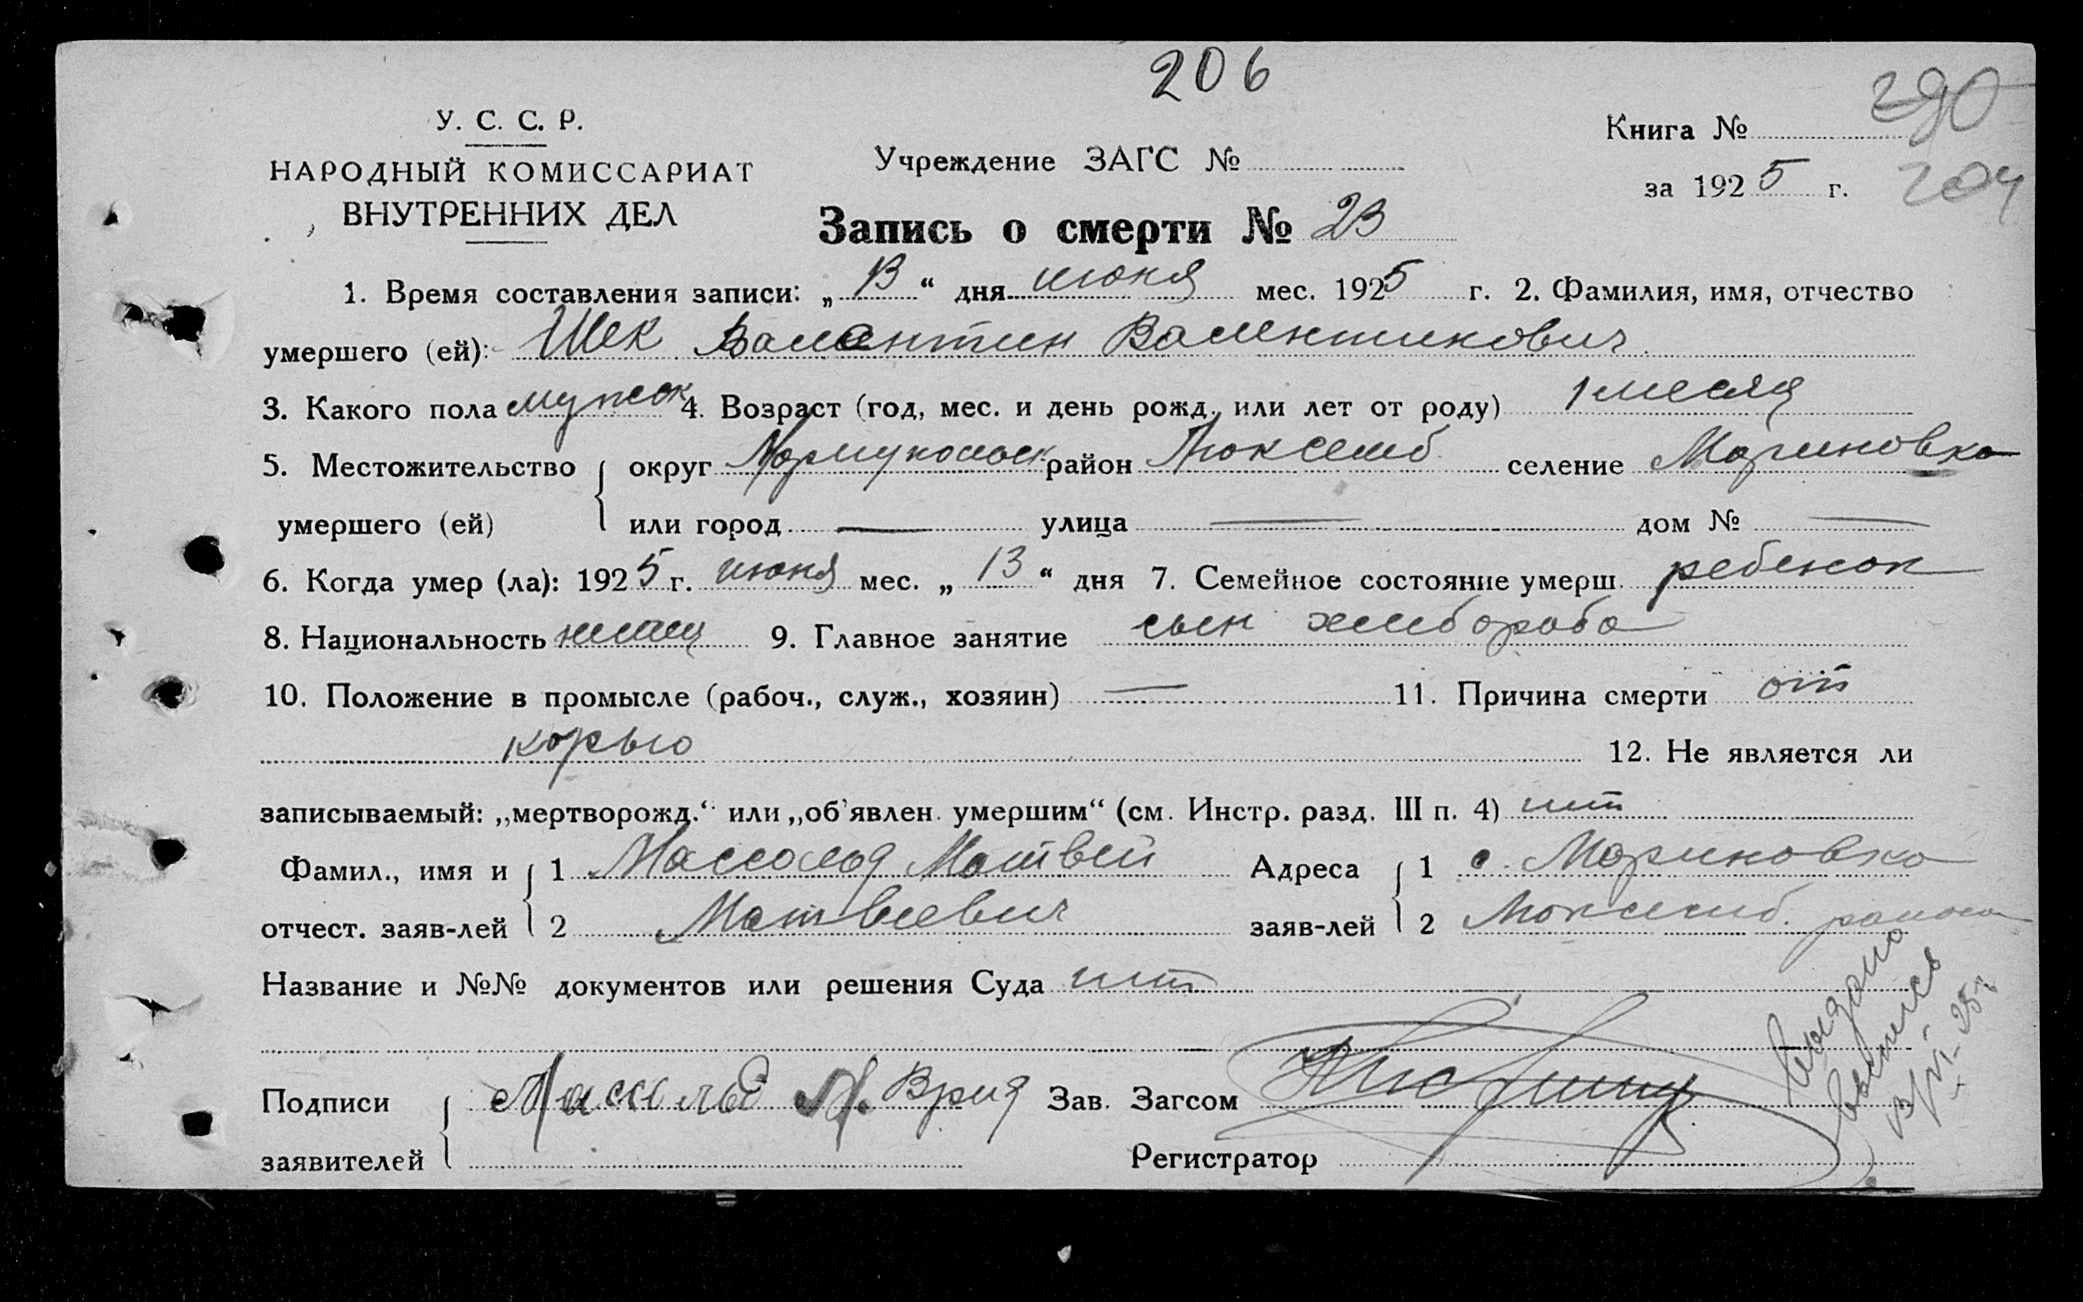 206
290
У. С. С. Р.
Книга №
НАРОДНЫЙ КОМИССАРИАТ
Учреждение ЗАГС №
за 1925 г. 204
ВНУТРЕННИХ ДЕЛ
Запись о смерти № 23
1. Время составления записи: „13“ дня июня мес. 1925 г. 2. Фамилия, имя, отчество
умершего (ей): Шек Валентин Валентинович
3. Какого пола мужск 4. Возраст (год, мес. и день рожд. или лет от роду) 1 месяц
5. Местожительство округ район Люксемб селение Мариновка
умершего (ей) или город — улица — дом № —
6. Когда умер (ла): 1925 г. июня мес. „13“ дня 7. Семейное состояние умерш. ребенок
8. Национальность немец 9. Главное занятие сын хлебороба
10. Положение в промысле (рабоч., служ., хозяин) — 11. Причина смерти от
корью
12. Не является ли
записываемый: „мертворожд.“ или „об'явлен. умершим“ (см. Инстр. разд. III п. 4) нет
Фамил., имя и 1 Массольд Матвей Адреса 1 с. Мариновка
отчест. заяв-лей 2 Матвеевич заяв-лей 2 Люксемб. района
Название и №№ документов или решения Суда нет
Подписи Массольд М. Врид Зав. Загсом
заявителей Регистратор
Выдана
выпись